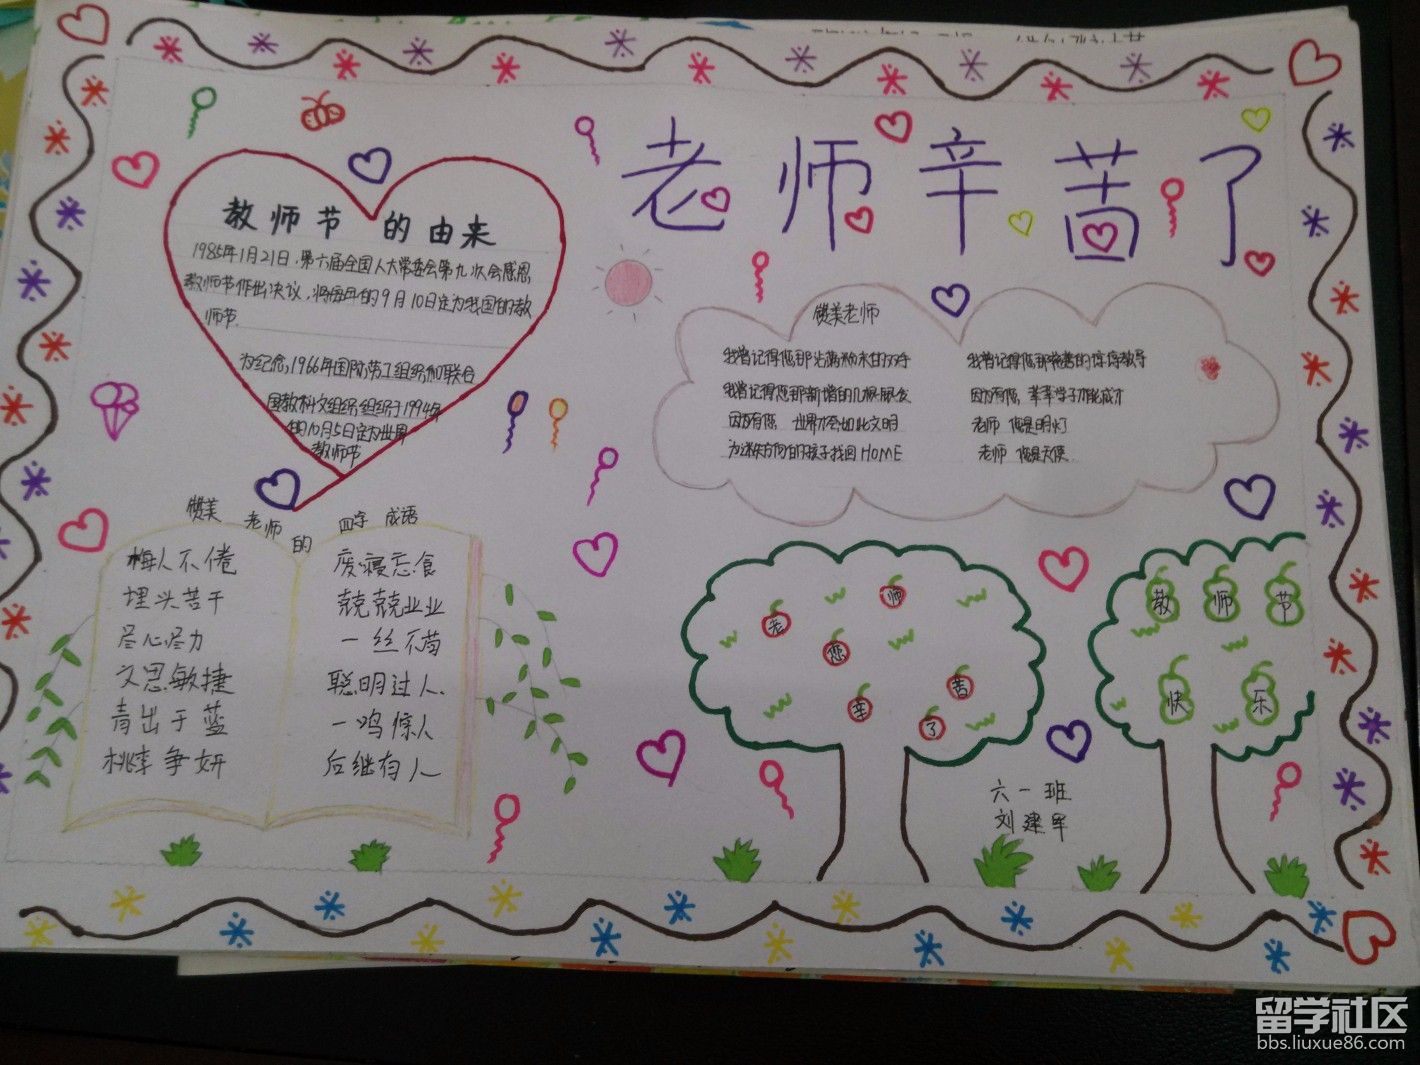 老师辛苦了
教师节的由来
1985年1月21日,第六届全国人大常委会第九次会感恩
教师节作出决议,将每年的9月10日定为我国的教
师节.
为纪念,1966年国际劳工组织和联合
国教科文组织组织于1994年
的10月5日定为世界
教师节
赞美老师
我曾记得您那光满粉末的双手
我曾记得您那新增的几根银发
因为有您 世界才会如此文明
为迷失方向的孩子找回HOME
我曾记得您那慈善的谆谆教导
因为有您,莘莘学子才能成才
老师 你是明灯
老师 你是天使
赞美老师的四字成语
梅人不倦
埋头苦干
尽心尽力
文思敏捷
青出于蓝
桃李争妍
废寝忘食
兢兢业业
一丝不苟
聪明过人.
一鸣惊人
后继有人
老师您辛苦了
教师节
快乐
六一班
刘建军
留学社区
bbs.liuxue86.com